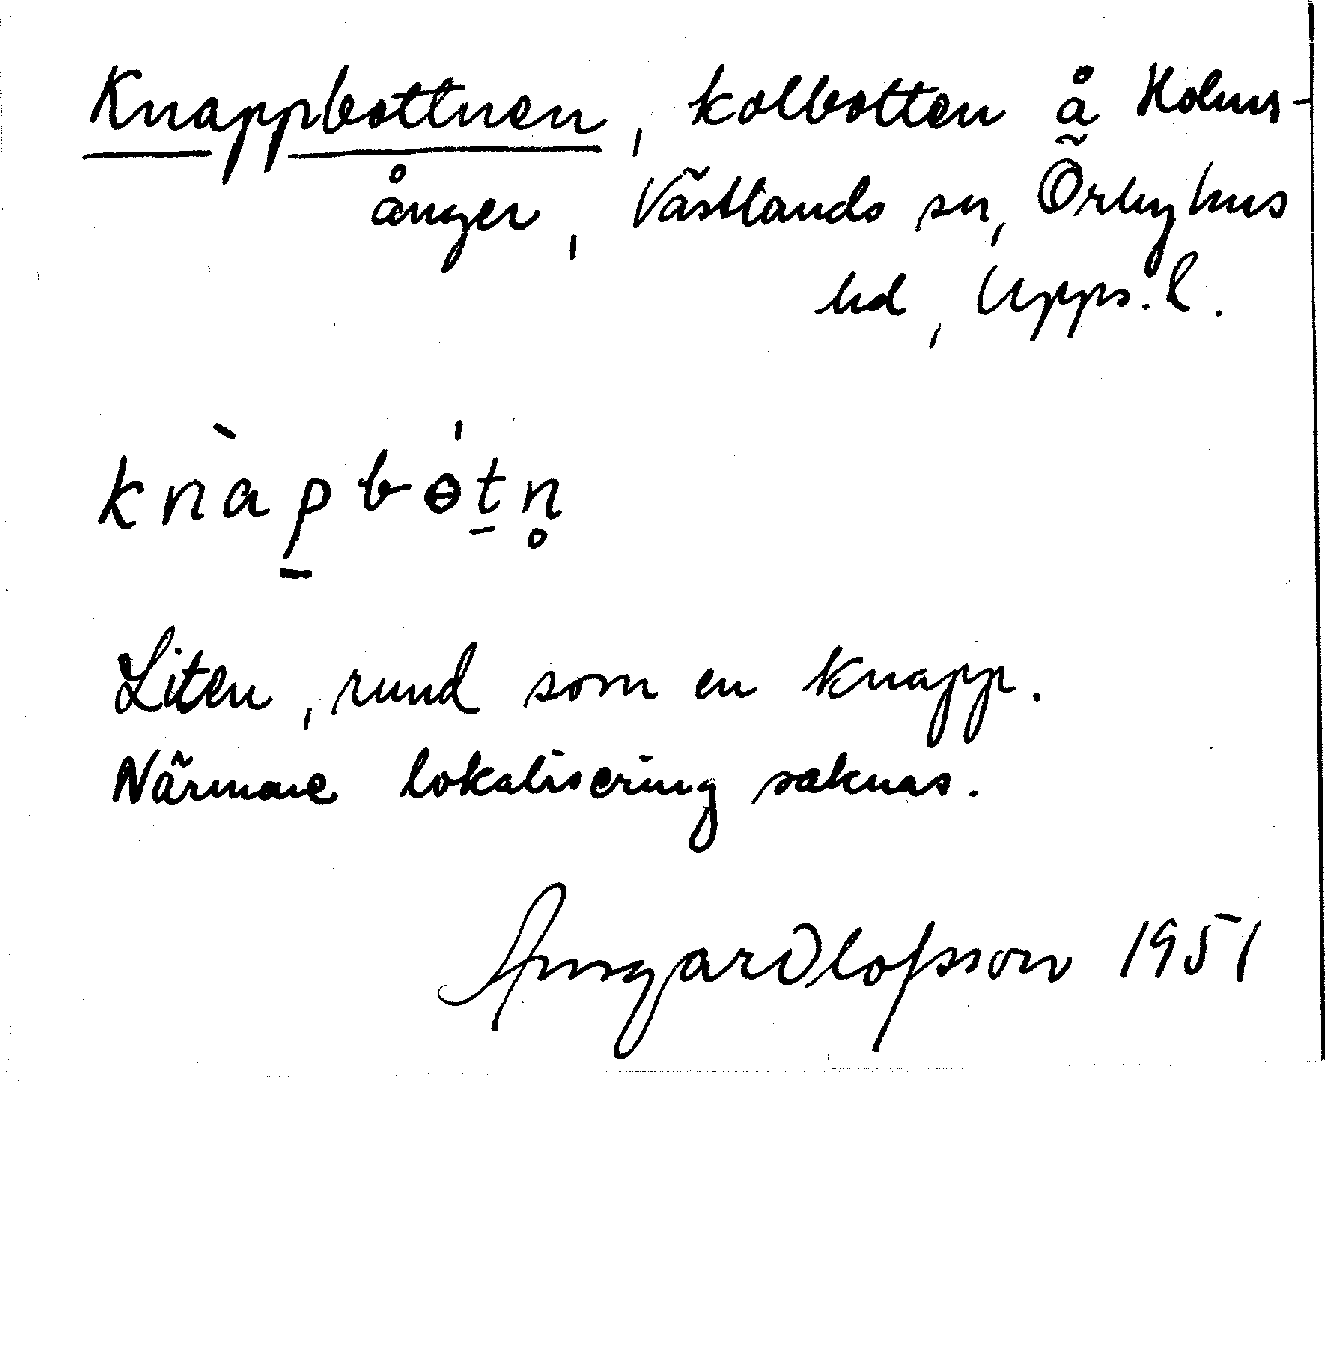 Knappbottnen, kolbotten å Holms-
ånger, Västlands sn, Örbyhus
hd, Upps. l.
knàpbɵ́tn̥
Liten, rund som en knapp.
Närmare lokalisering saknas.
Ansgar Olofsson 1951